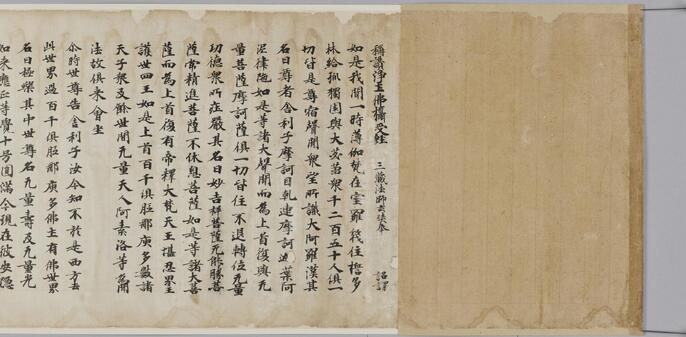 稱讚淨土佛攝受經 三藏法師玄奘奉 詔譯
如是我聞一時薄伽梵在室羅筏住誓多
林給孤獨園與大苾芻衆千二百五十人俱一
切皆是尊宿聲聞衆望所識大阿羅漢其
名曰尊者舍利子摩訶目乹連摩訶迦葉阿
泥律陁如是等諸大聲聞而爲上首復與无
量菩薩摩訶薩俱一切皆住不退轉位无量
功德衆所莊嚴其名曰妙吉祥菩薩无能勝菩
薩常精進菩薩不休息菩薩如是等諸大菩
薩而爲上首復有帝釋大梵天王堪忍界主
護世四王如是上首百千俱胝那庾多數諸
天子衆及餘世間无量天人阿素洛等爲聞
法故俱來會坐
尒時世尊告舍利子汝今知不於是西方去
此世界過百千俱胝那庾多佛土有佛世界
名曰極樂其中世尊名无量壽及无量光
如來應正等覺十号圓滿今現在彼安隱